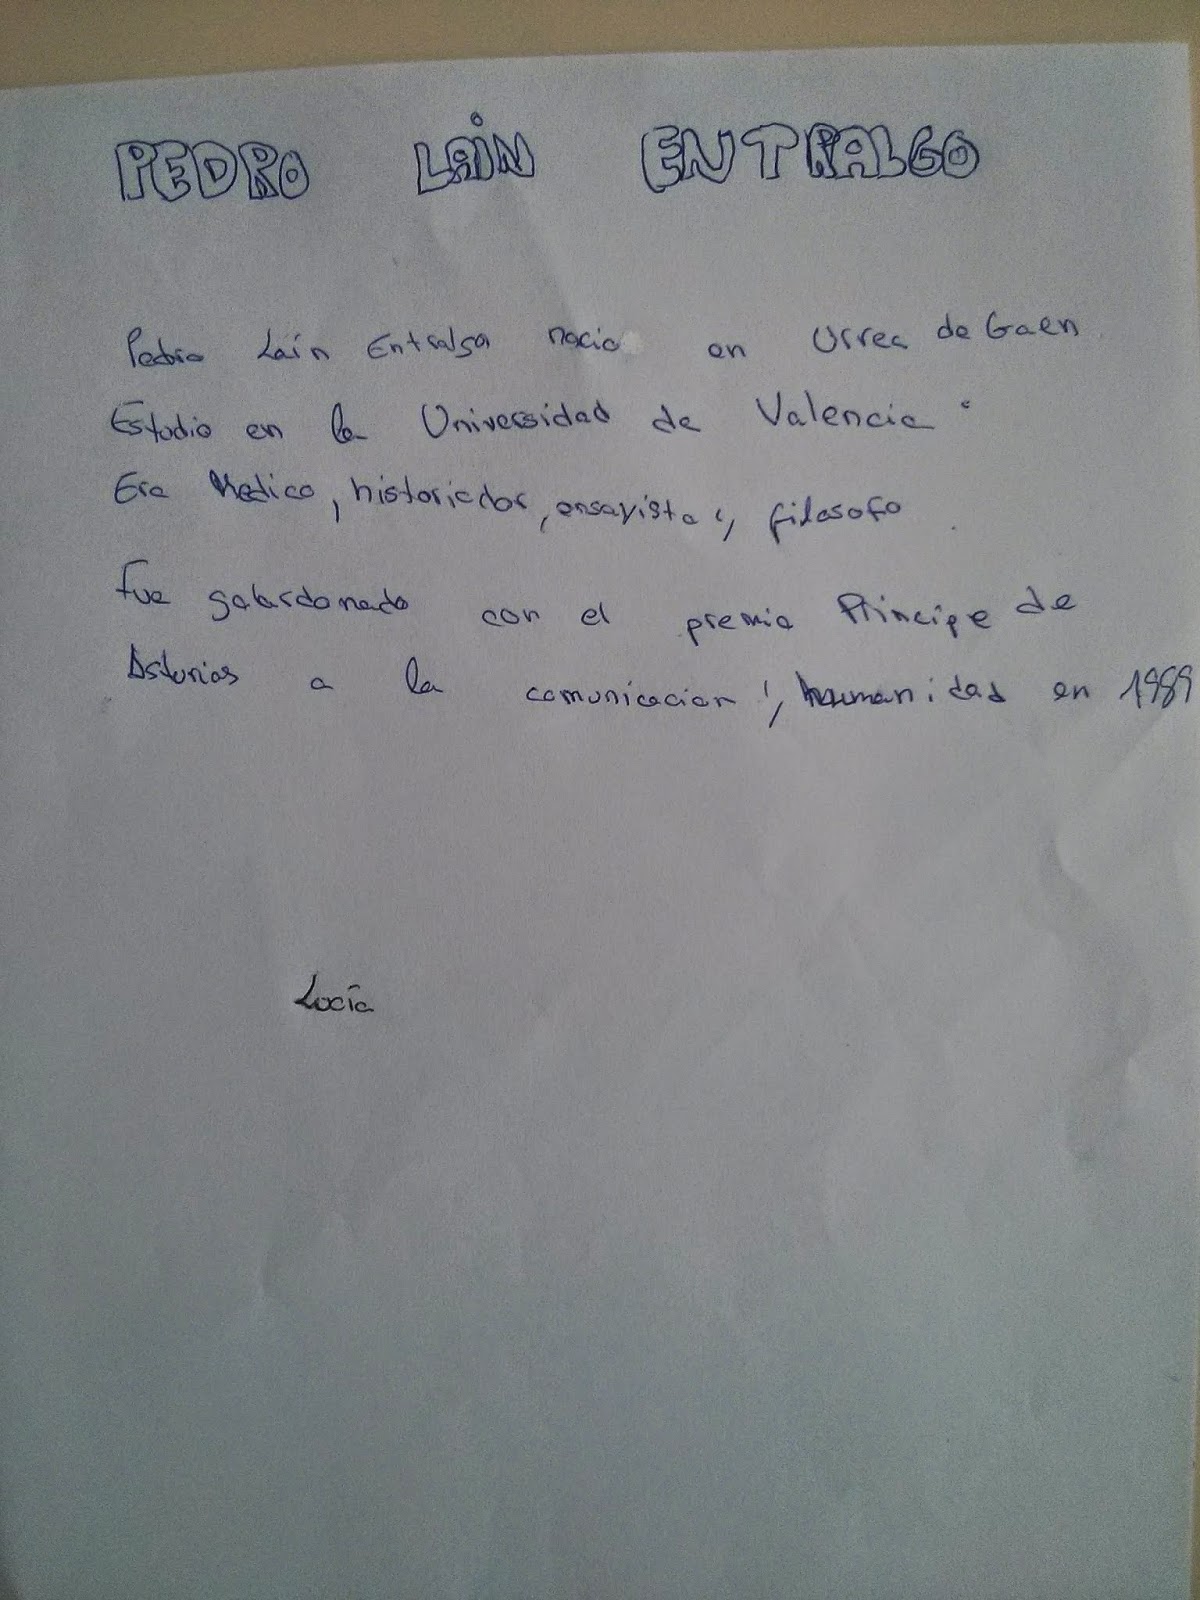 PEDRO LAÍN ENTRALGO
Pedro Laín Entralgo nacio en Urrea de Gaen
Estudio en la Universidad de Valencia
Era Medico, historiador, ensayista y filosofo.
Fue galardonado con el premio Principe de
Asturias a la comunicacion y humanidad en 1989
Lucía